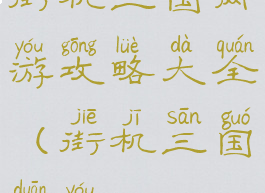 街机三国
yóu gōng lüè dà quán
游攻略大全
jiē jī sān guó
(街机三国
duān yóu